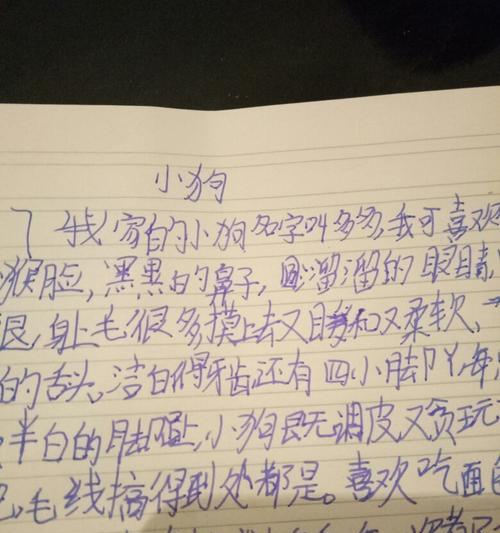 小狗
我家的小狗名字叫多多,我可喜欢
猴脸,黑黑的鼻子,溜溜的眼睛
身上毛很多摸上去又暖和又柔软,
的舌头,洁白得牙齿还有四小脚丫,每
半白的脚,小狗既无调皮又贪玩
毛线搞得到处都是。喜欢吃面